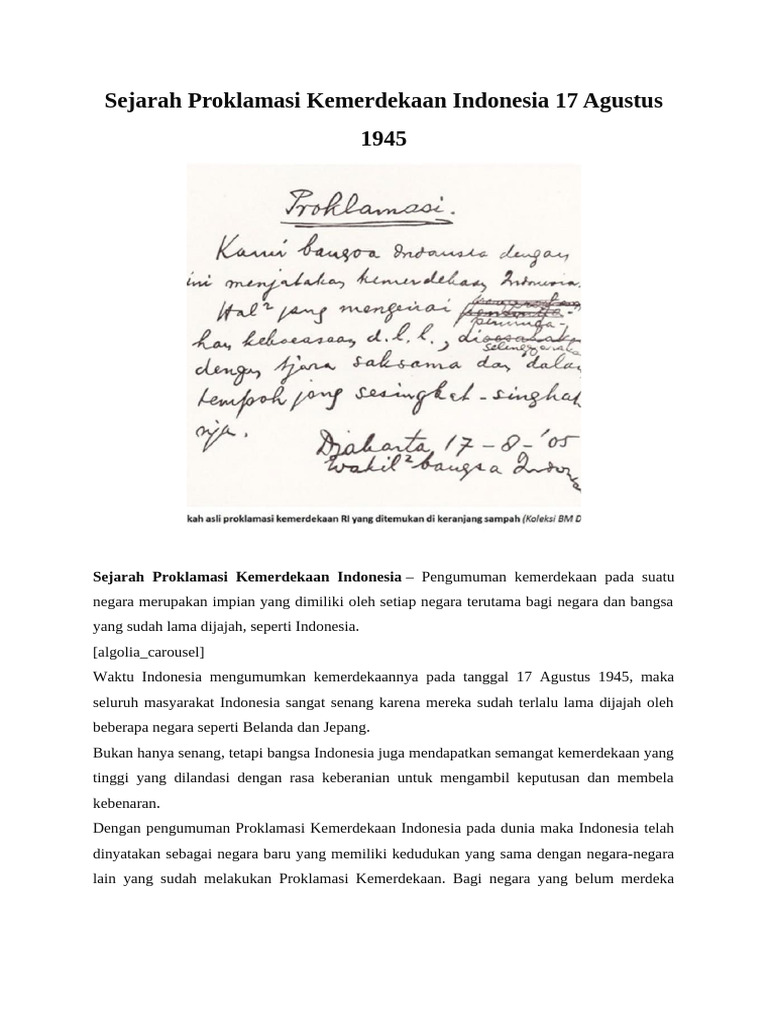 Sejarah Proklamasi Kemerdekaan Indonesia 17 Agustus
1945
Proklamasi.
Kami bangsa Indonesia dengan
ini menjatakan kemerdekaan Indonesia.
Hal² jang mengenai
peminda-
han kekoeasaan d.l.l., dioesahakan
selenggarakan
dengan tjara saksama dan dalam
tempoh jang sesingkat-singkat
nja.
Djakarta 17 - 8 - '05
Wakil² bangsa Indon
kah asli proklamasi kemerdekaan RI yang ditemukan di keranjang sampah (Koleksi BM D
Sejarah Proklamasi Kemerdekaan Indonesia – Pengumuman kemerdekaan pada suatu
negara merupakan impian yang dimiliki oleh setiap negara terutama bagi negara dan bangsa
yang sudah lama dijajah, seperti Indonesia.
[algolia_carousel]
Waktu Indonesia mengumumkan kemerdekaannya pada tanggal 17 Agustus 1945, maka
seluruh masyarakat Indonesia sangat senang karena mereka sudah terlalu lama dijajah oleh
beberapa negara seperti Belanda dan Jepang.
Bukan hanya senang, tetapi bangsa Indonesia juga mendapatkan semangat kemerdekaan yang
tinggi yang dilandasi dengan rasa keberanian untuk mengambil keputusan dan membela
kebenaran.
Dengan pengumuman Proklamasi Kemerdekaan Indonesia pada dunia maka Indonesia telah
dinyatakan sebagai negara baru yang memiliki kedudukan yang sama dengan negara-negara
lain yang sudah melakukan Proklamasi Kemerdekaan. Bagi negara yang belum merdeka